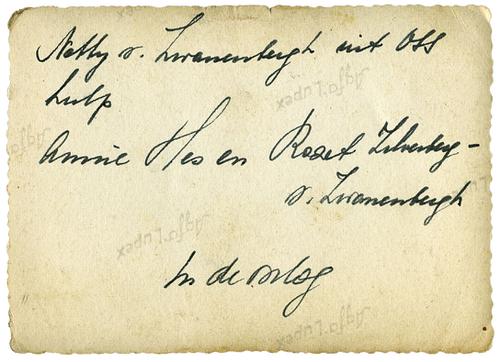 Netty v. Zwanenbergh uit Oss
hulp
Annie Hes en Roset Zilverberg -
v. Zwanenbergh
In de oorlog
Agfa Lupex
Agfa Lupex
Agfa Lupex
Agfa Lupex